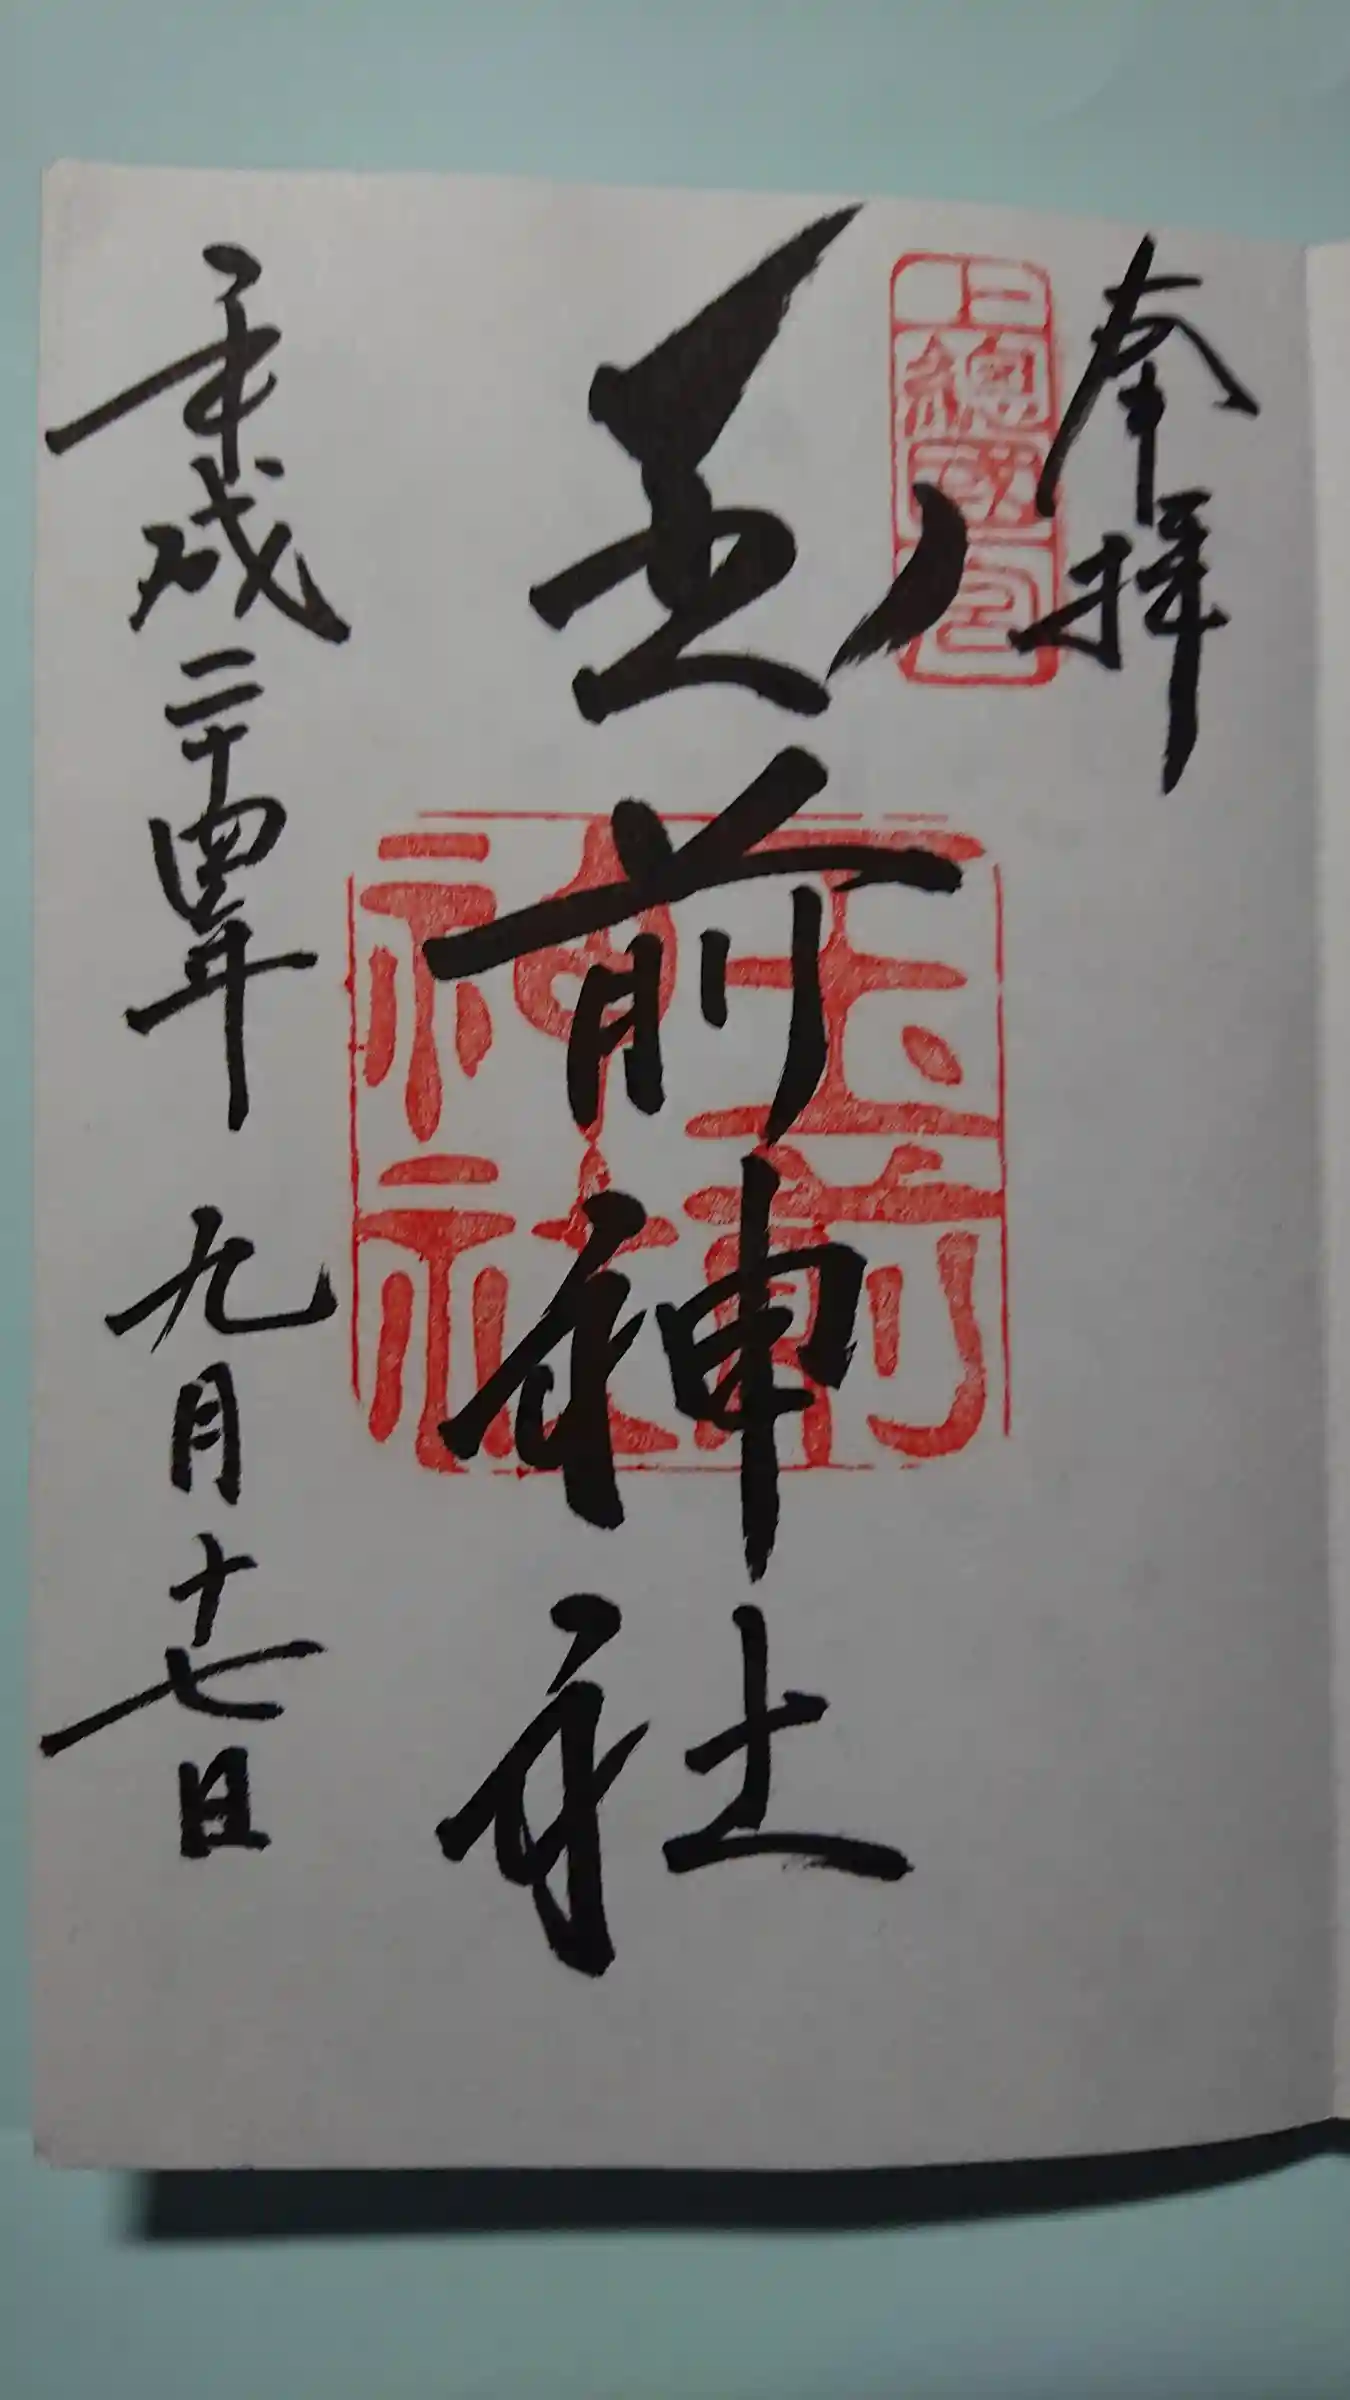 奉拝
上總國一宮
玉前神社
玉前
神社
平成二十四年 九月十七日